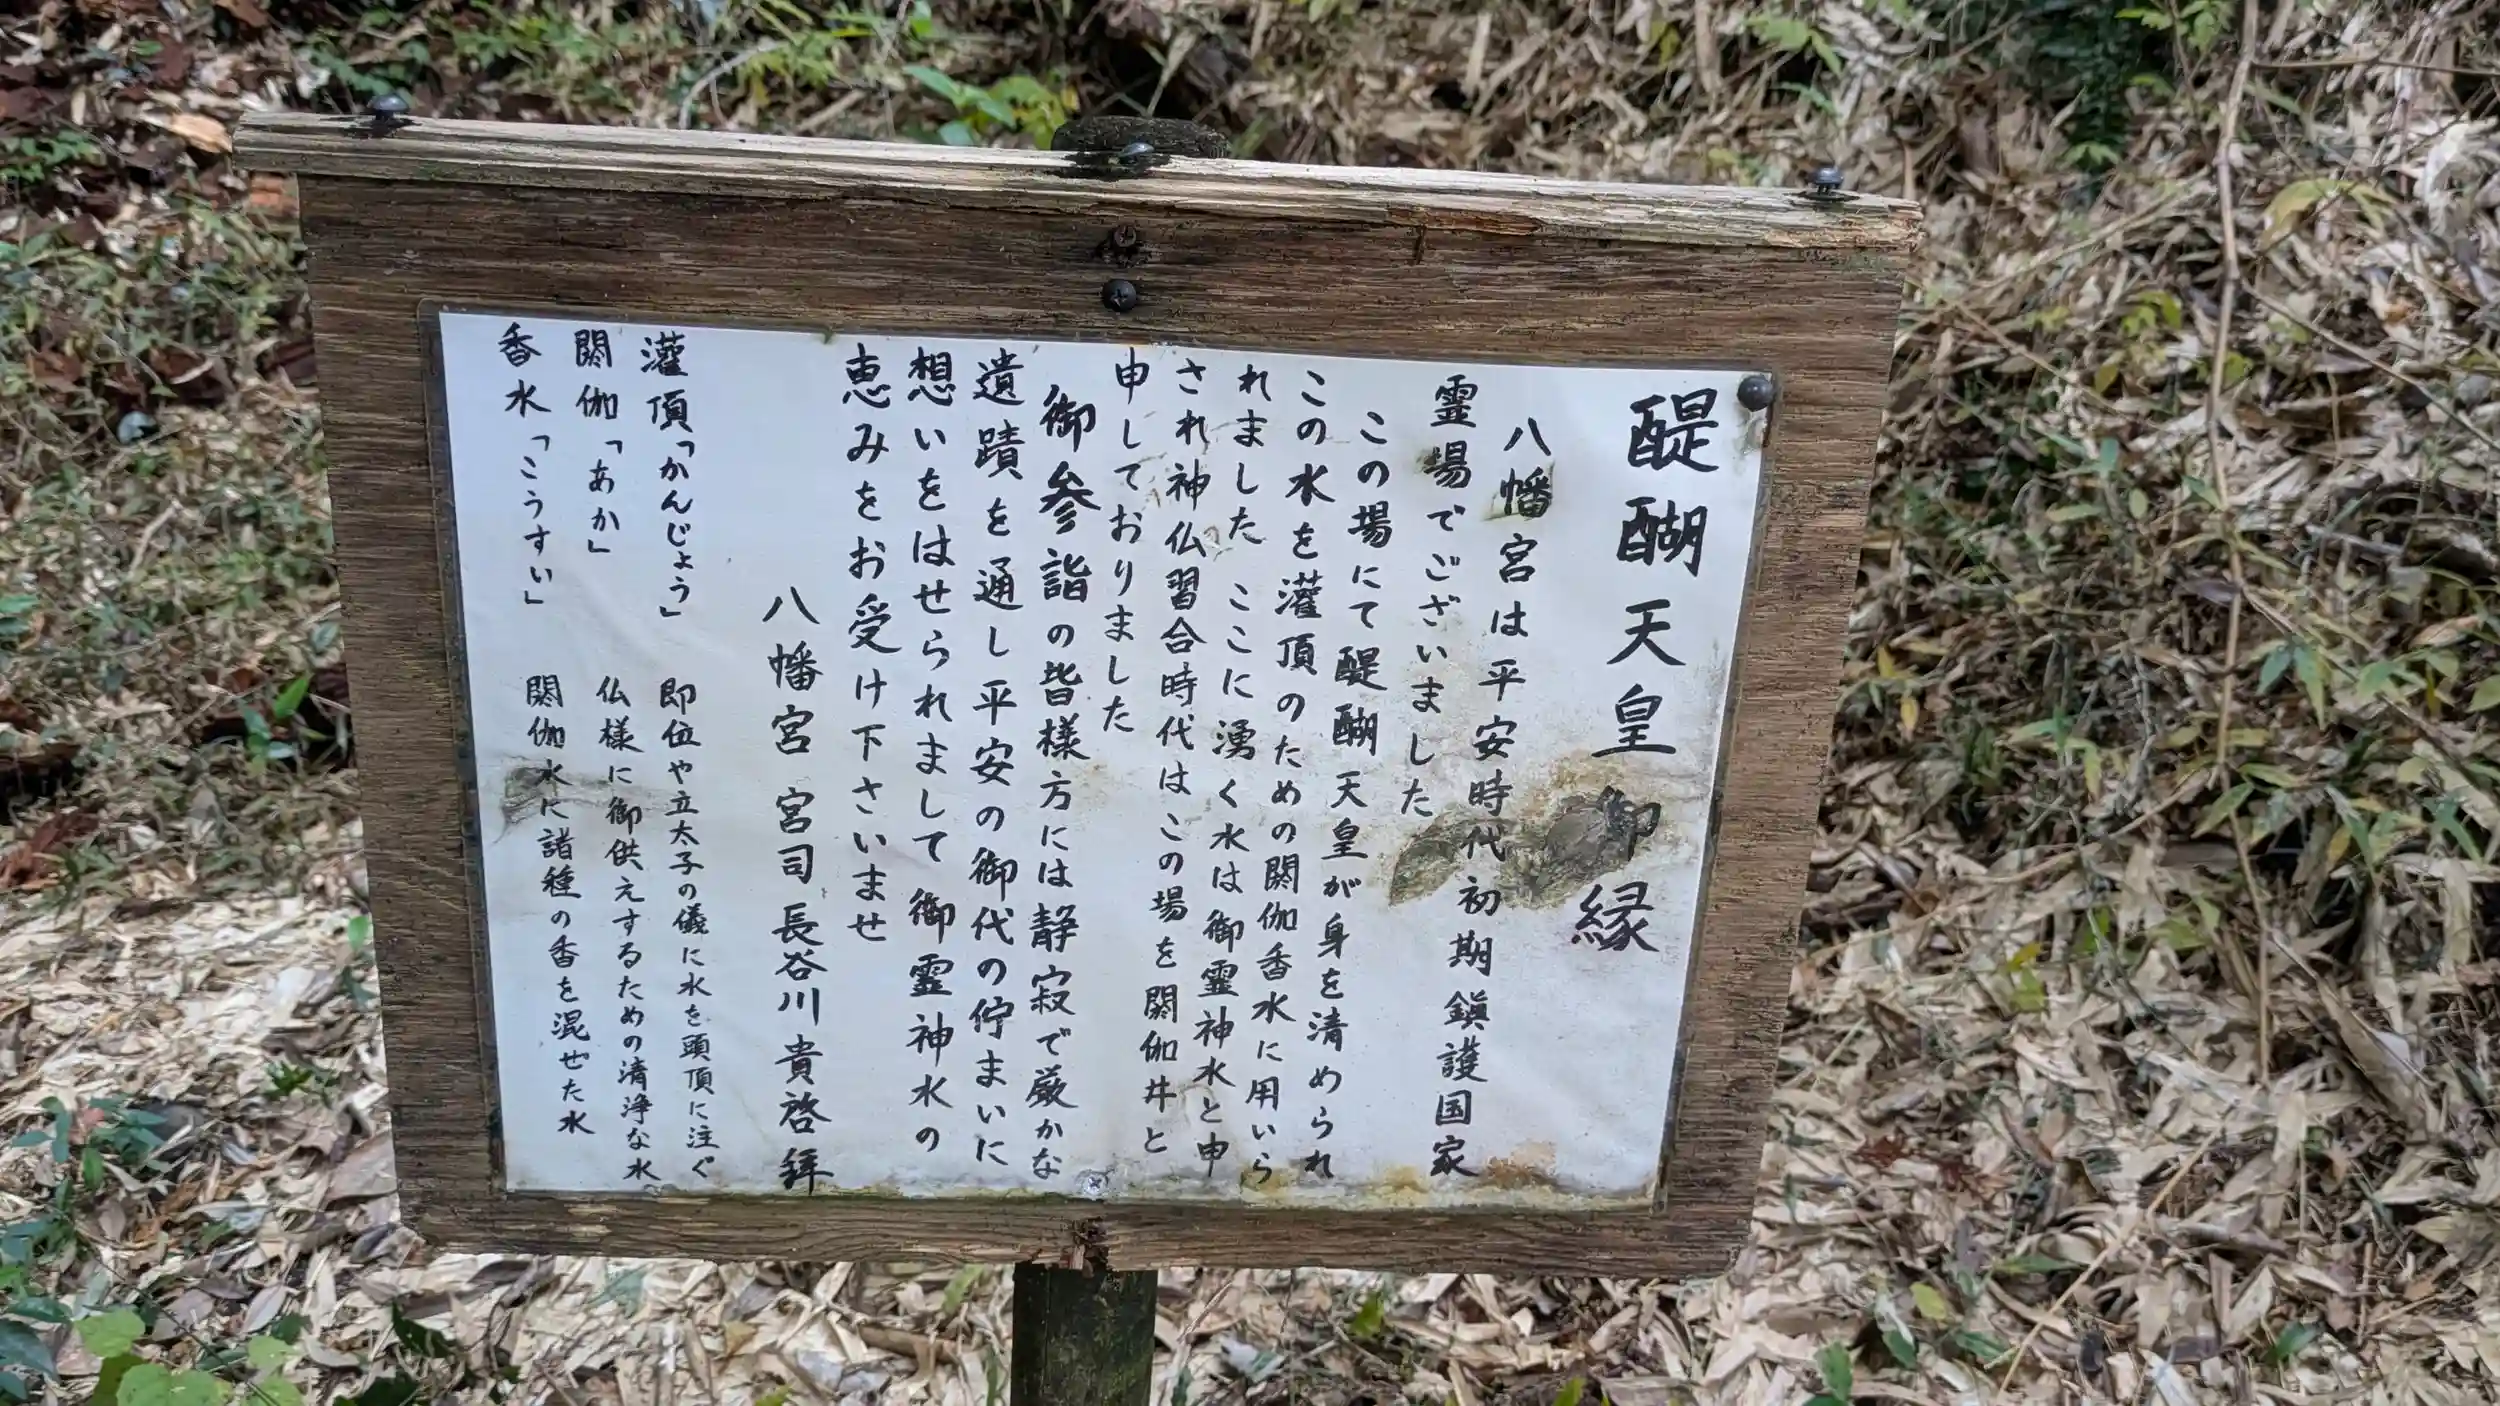 醍醐天皇御縁
八幡宮は平安時代初期鎮護国家
霊場でございました
この場にて醍醐天皇が身を清められ
この水を灌頂のための閼伽香水に用いら
れました ここに湧く水は御霊神水と申
され神仏習合時代はこの場を閼伽井と
申しておりました
御参詣の皆様方には静寂で厳かな
遺蹟を通し平安の御代の佇まいに
想いをはせられまして御霊神水の
恵みをお受け下さいませ
八幡宮 宮司 長谷川貴啓 拝
灌頂「かんじょう」 即位や立太子の儀に水を頭頂に注ぐ
閼伽「あか」 仏様に御供えするための清浄な水
香水「こうすい」 閼伽水に諸種の香を混ぜた水